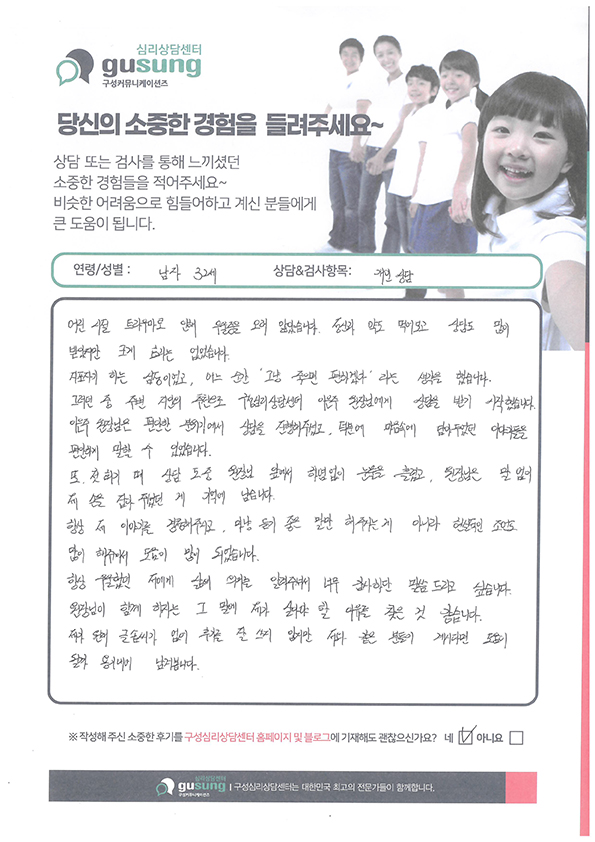 심리상담센터
gusung
구성커뮤니케이션즈
당신의 소중한 경험을 들려주세요~
상담 또는 검사를 통해 느끼셨던
소중한 경험들을 적어주세요~
비슷한 어려움으로 힘들어하고 계신 분들에게
큰 도움이 됩니다.
연령/성별 : 남자 32세 상담&검사항목: 개인 상담
어린 시절 트라우마로 인해 우울증을 오래 앓았습니다. 정신과 약도 먹어보고 상담도 많이
받았지만 크게 효과는 없었습니다.
자포자기 하는 심정이었고, 어느 순간 '그냥 죽으면 편하겠다' 라는 생각을 했습니다.
그러던 중 주변 지인의 추천으로 구성심리상담센터 원장님에게 상담을 받기 시작했습니다.
원장님은 편안한 분위기에서 상담을 진행해주셨고, 덕분에 마음속에 담아두었던 이야기들을
편안하게 말할 수 있었습니다.
또, 첫 회기 때 상담 도중 원장님 앞에서 하염없이 눈물을 흘렸고, 원장님은 말 없이
제 손을 잡아 주셨던 게 기억에 남습니다.
항상 제 이야기를 경청해주시고, 마냥 듣기 좋은 말만 해주시는게 아니라 현실적인 조언도
많이 해주셔서 도움이 많이 되었습니다.
항상 우울했던 저에게 삶의 의미를 알려주셔서 너무 감사하단 말씀 드리고 싶습니다.
원장님이 함께 하자는 그 말에 제가 살아야 할 이유를 찾은 것 같습니다.
제가 원래 글솜씨가 없어 후기를 잘 쓰지 않지만 저와 같은 분들이 계시다면 도움이
될까 용기내어 남겨봅니다.
※ 작성해 주신 소중한 후기를 구성심리상담센터 홈페이지 및 블로그에 기재해도 괜찮으신가요? 네 ☑ 아니요 ☐
심리상담센터
gusung
구성커뮤니케이션즈
I 구성심리상담센터는 대한민국 최고의 전문가들이 함께합니다.